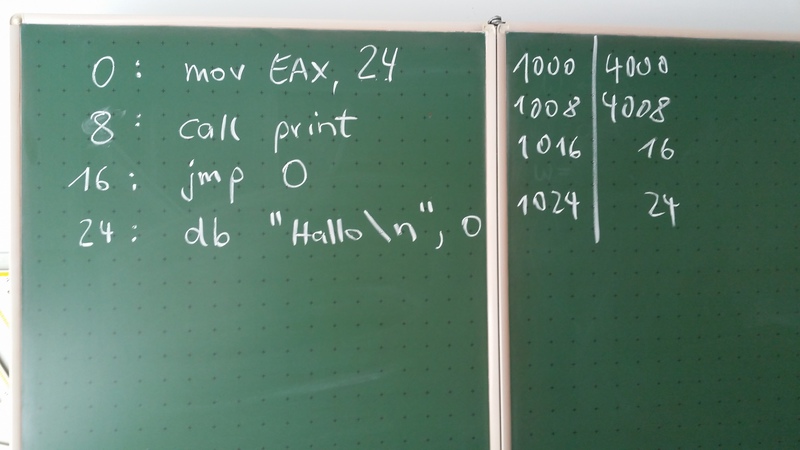 0: mov EAX, 24
8: call print
16: jmp 0
24: db "Hallo\n", 0
1000 4000
1008 4008
1016 16
1024 24